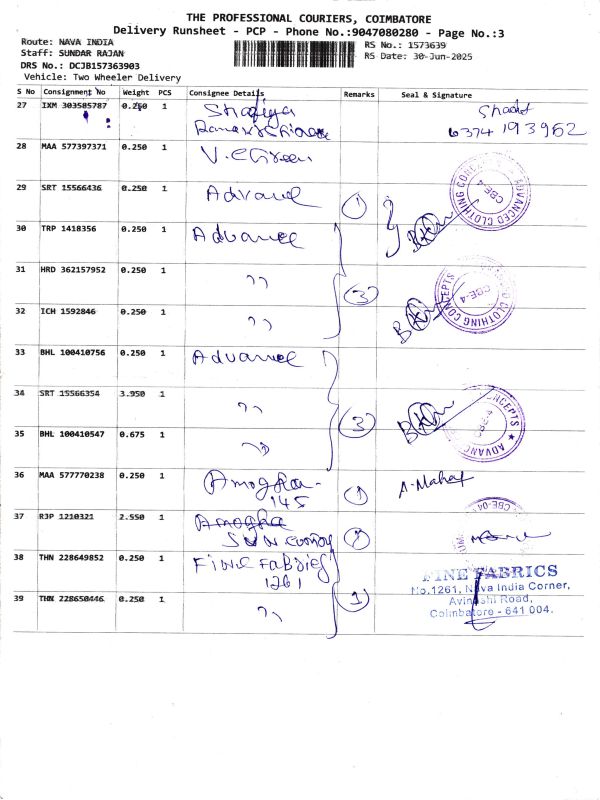 THE PROFESSIONAL COURIERS, COIMBATORE
Delivery Runsheet - PCP - Phone No.:9047080280 - Page No.:3
Route: NAVA INDIA
RS No.: 1573639
Staff: SUNDAR RAJAN
RS Date: 30-Jun-2025
DRS No.: DCJB157363903
Vehicle: Two Wheeler Delivery
S No Consignment No Weight PCS Consignee Details Remarks Seal & Signature
27 IXM 303585787 0.250 1 Shafiya
6374193962
28 MAA 577397371 0.250 1 V. eGreen
29 SRT 15566436 0.250 1 Advance 1
ADVANCED CLOTHING CONCEPTS CBE-4
30 TRP 1418356 0.250 1 Advance
31 HRD 362157952 0.250 1 ,, 3
CLOTHING CONCEPTS CBE-4
32 ICH 1592846 0.250 1 ,,
33 BHL 100410756 0.250 1 Advance
34 SRT 15566354 3.950 1 ,, 3
CONCEPTS ★ CBE-4
35 BHL 100410547 0.675 1 ,,
36 MAA 577770238 0.250 1 Amogha - 1 A. Mahat
145
37 RJP 1210321 2.550 1 Amogha
CBE-04
38 THN 228649852 0.250 1 Fine Fabries
1261
FINE FABRICS
No.1261, Nava India Corner,
39 THN 228650446 0.250 1 ,,
Avinashi Road,
Coimbatore - 641 004.